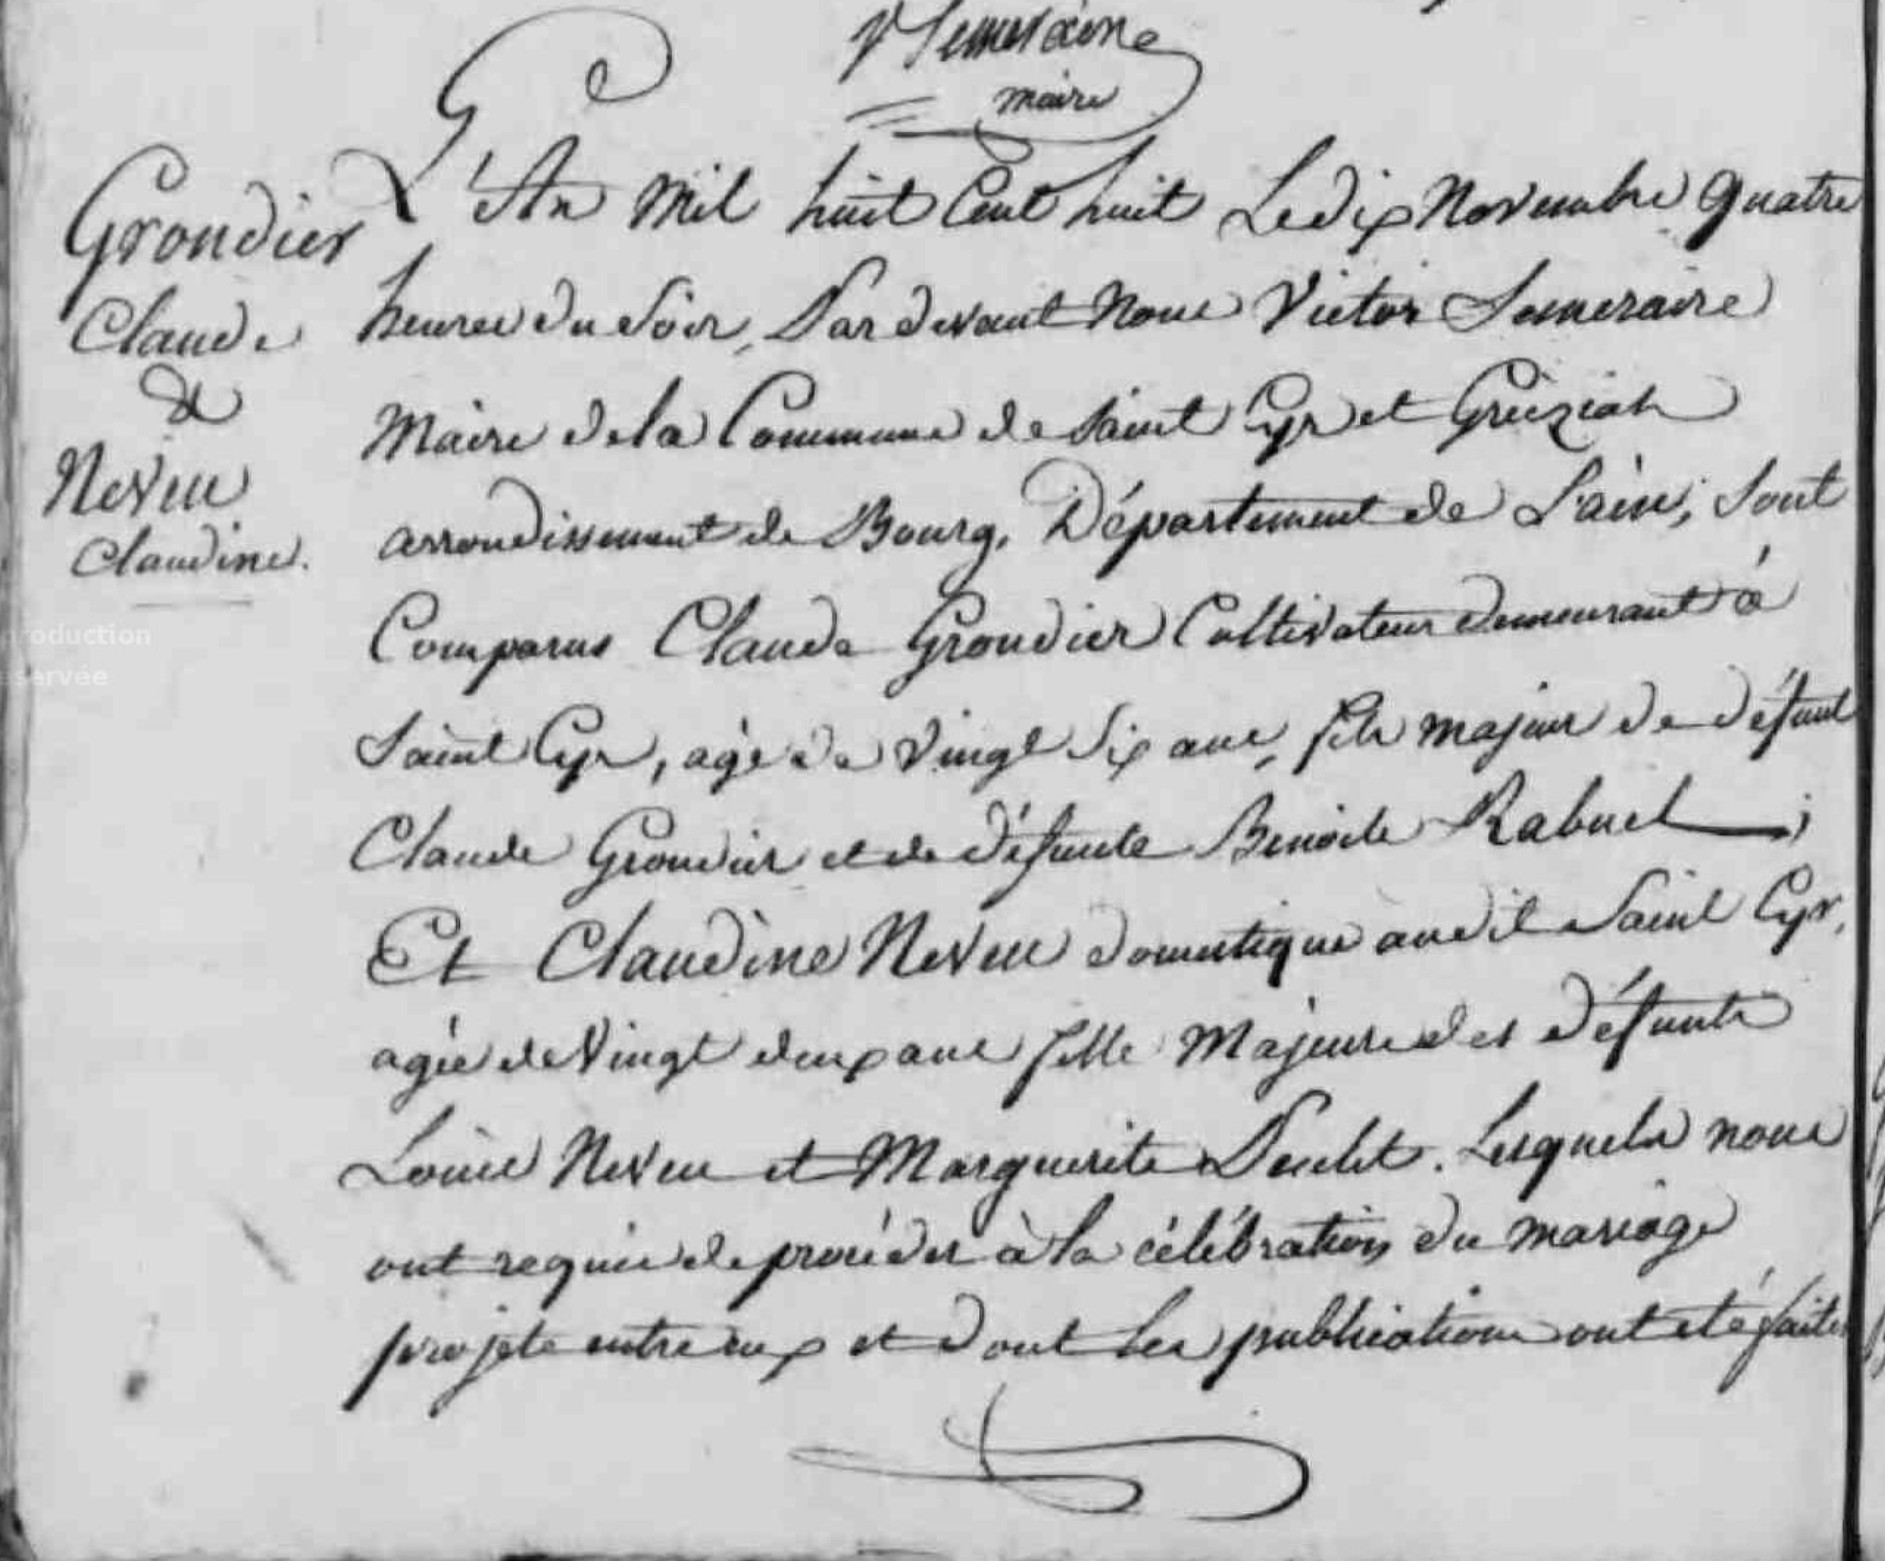 maire
Grondier
Claude
&
Neveu
Claudine.
L'An mil huit Cent huit Le dix Novembre quatre
heures du Soir, Par devant Nous Victor Someraire
Maire de la Commune de Saint Cyr et Grieziat
arrondissement de Bourg, Département de L'ain, Sont
Comparus Claude Grondier Cultivateur demeurant à
Saint Cyr, agé de Vingt Six ans, fils majeur de défunt
Claude Grondier et de défunte Benoite Rabuel ;
Et Claudine Neveu domestique audit Saint Cyr,
agée de Vingt deux ans fille Majeure des défunts
Louis Neveu et Marguerite. Lesquels nous
ont requis de procéder à la célébration du mariage
projeté entre eux et dont les publications ont été faites
production
servée